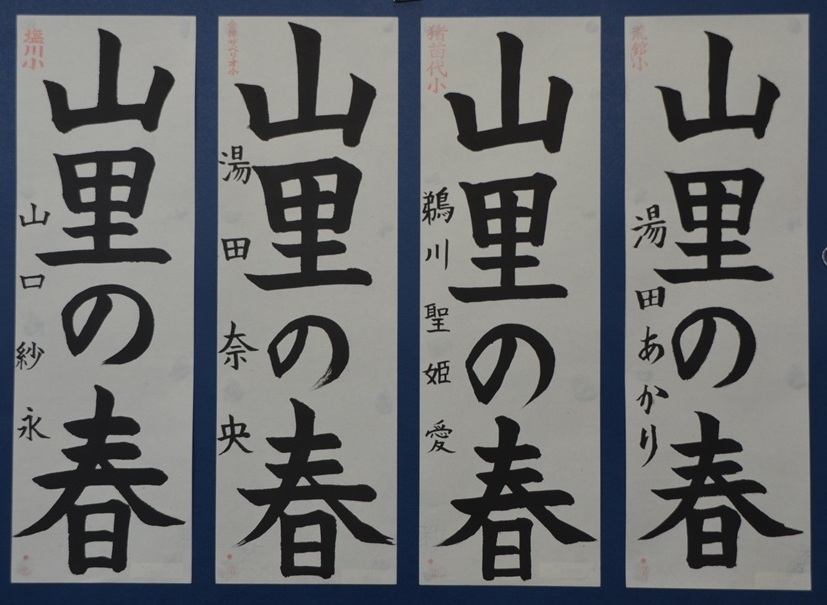 荒舘小
山里の春
湯田あかり
猪苗代小
山里の春
鵜川聖姫愛
会津ザベリオ小
山里の春
湯田奈央
塩川小
山里の春
山口紗永